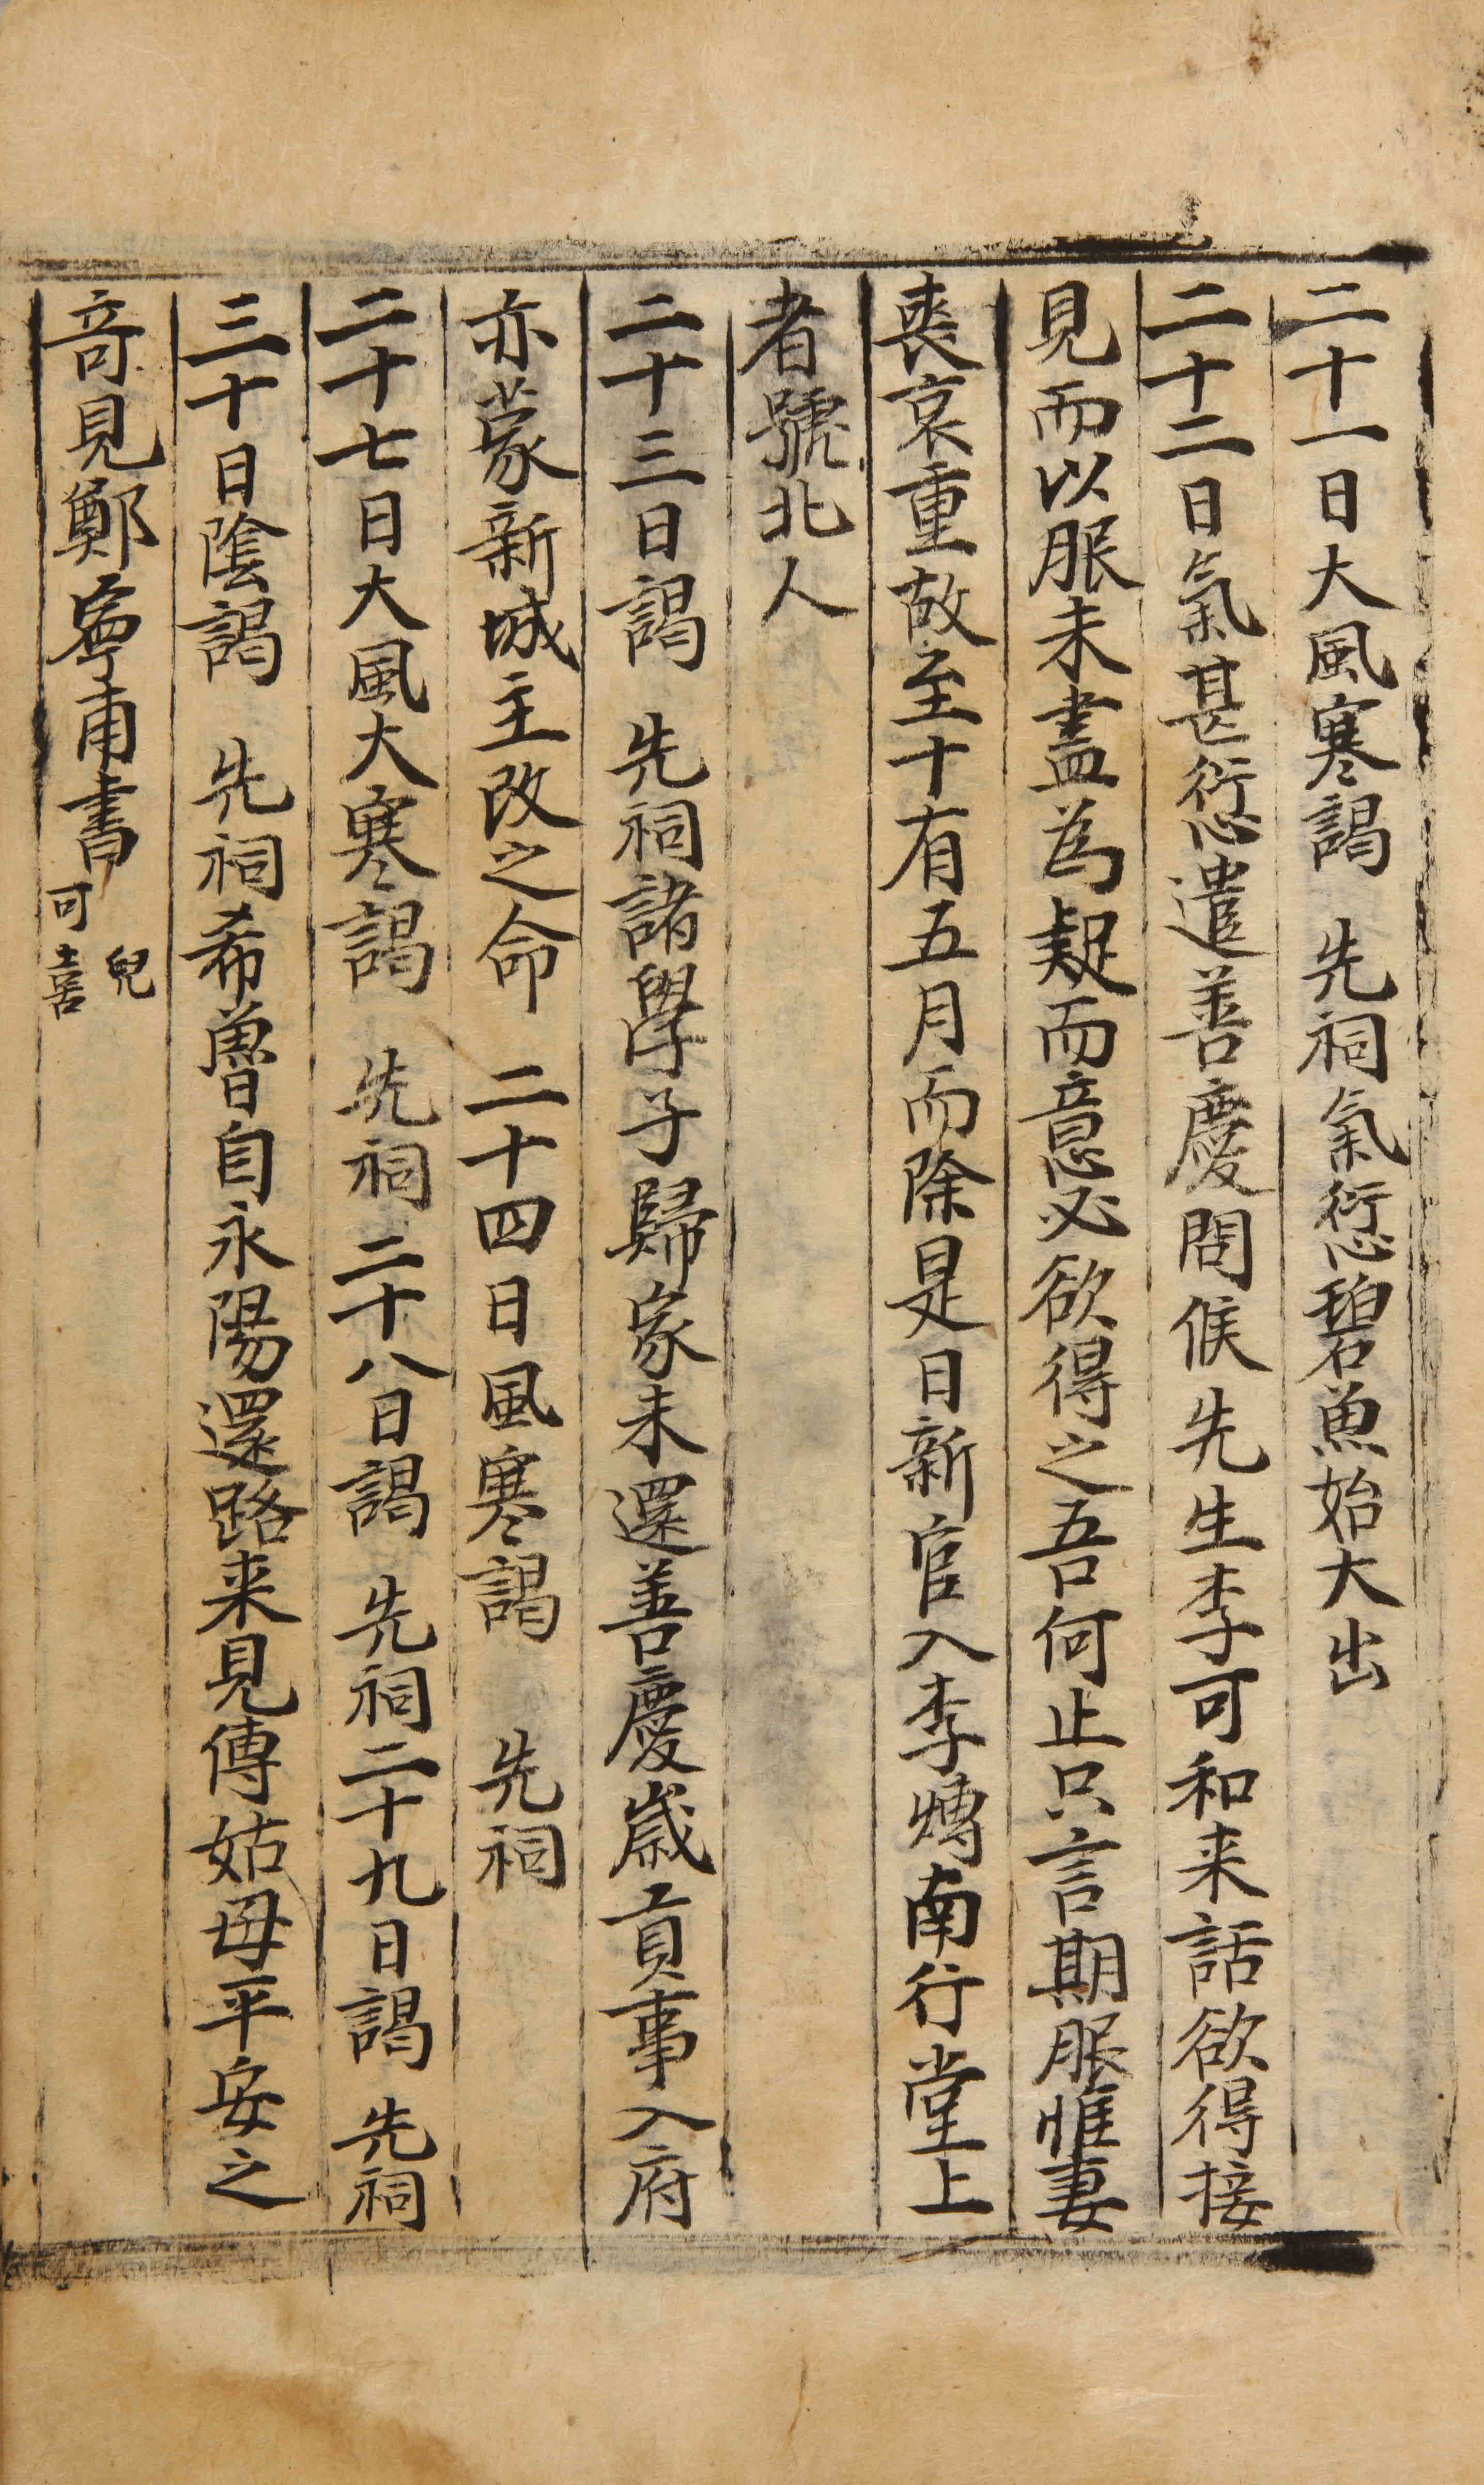 二十一日大風寒謁 先祠氣愆碧魚始大出
二十二日氣甚愆遣善慶問候先生李可和来話欲得接
見而以服未盡為疑而意必欲得之吾何止只言期服惟妻
喪哀重故至十有五月而除是日新官入李㷟南行堂上
者號北人
二十三日謁 先祠諸學子歸家未還善慶歲貢事入府
亦蒙新城主改之命 二十四日風寒謁 先祠
二十七日大風大寒謁 先祠二十八日謁 先祠二十九日謁 先祠
三十日陰謁 先祠希魯自永陽還路来見傳姑母平安之
奇見鄭寧甫書兒可喜